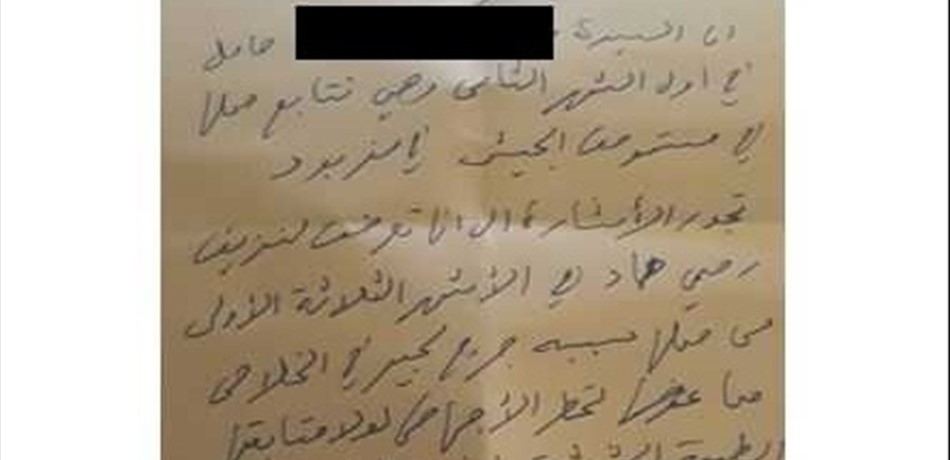 ان السيدة حامل
في أول الشهر الثامن وهي تتابع حملها
في مستوصف الجيش في مزبود
تجدر الأشارة الى انها تعرضت لنزيف
رحمي حاد في الأشهر الثلاثة الأولى
من حملها سببه جرح كبير في الخلاص
مما عرضها لخطر الأجهاض لولا متابعتها
الطبية